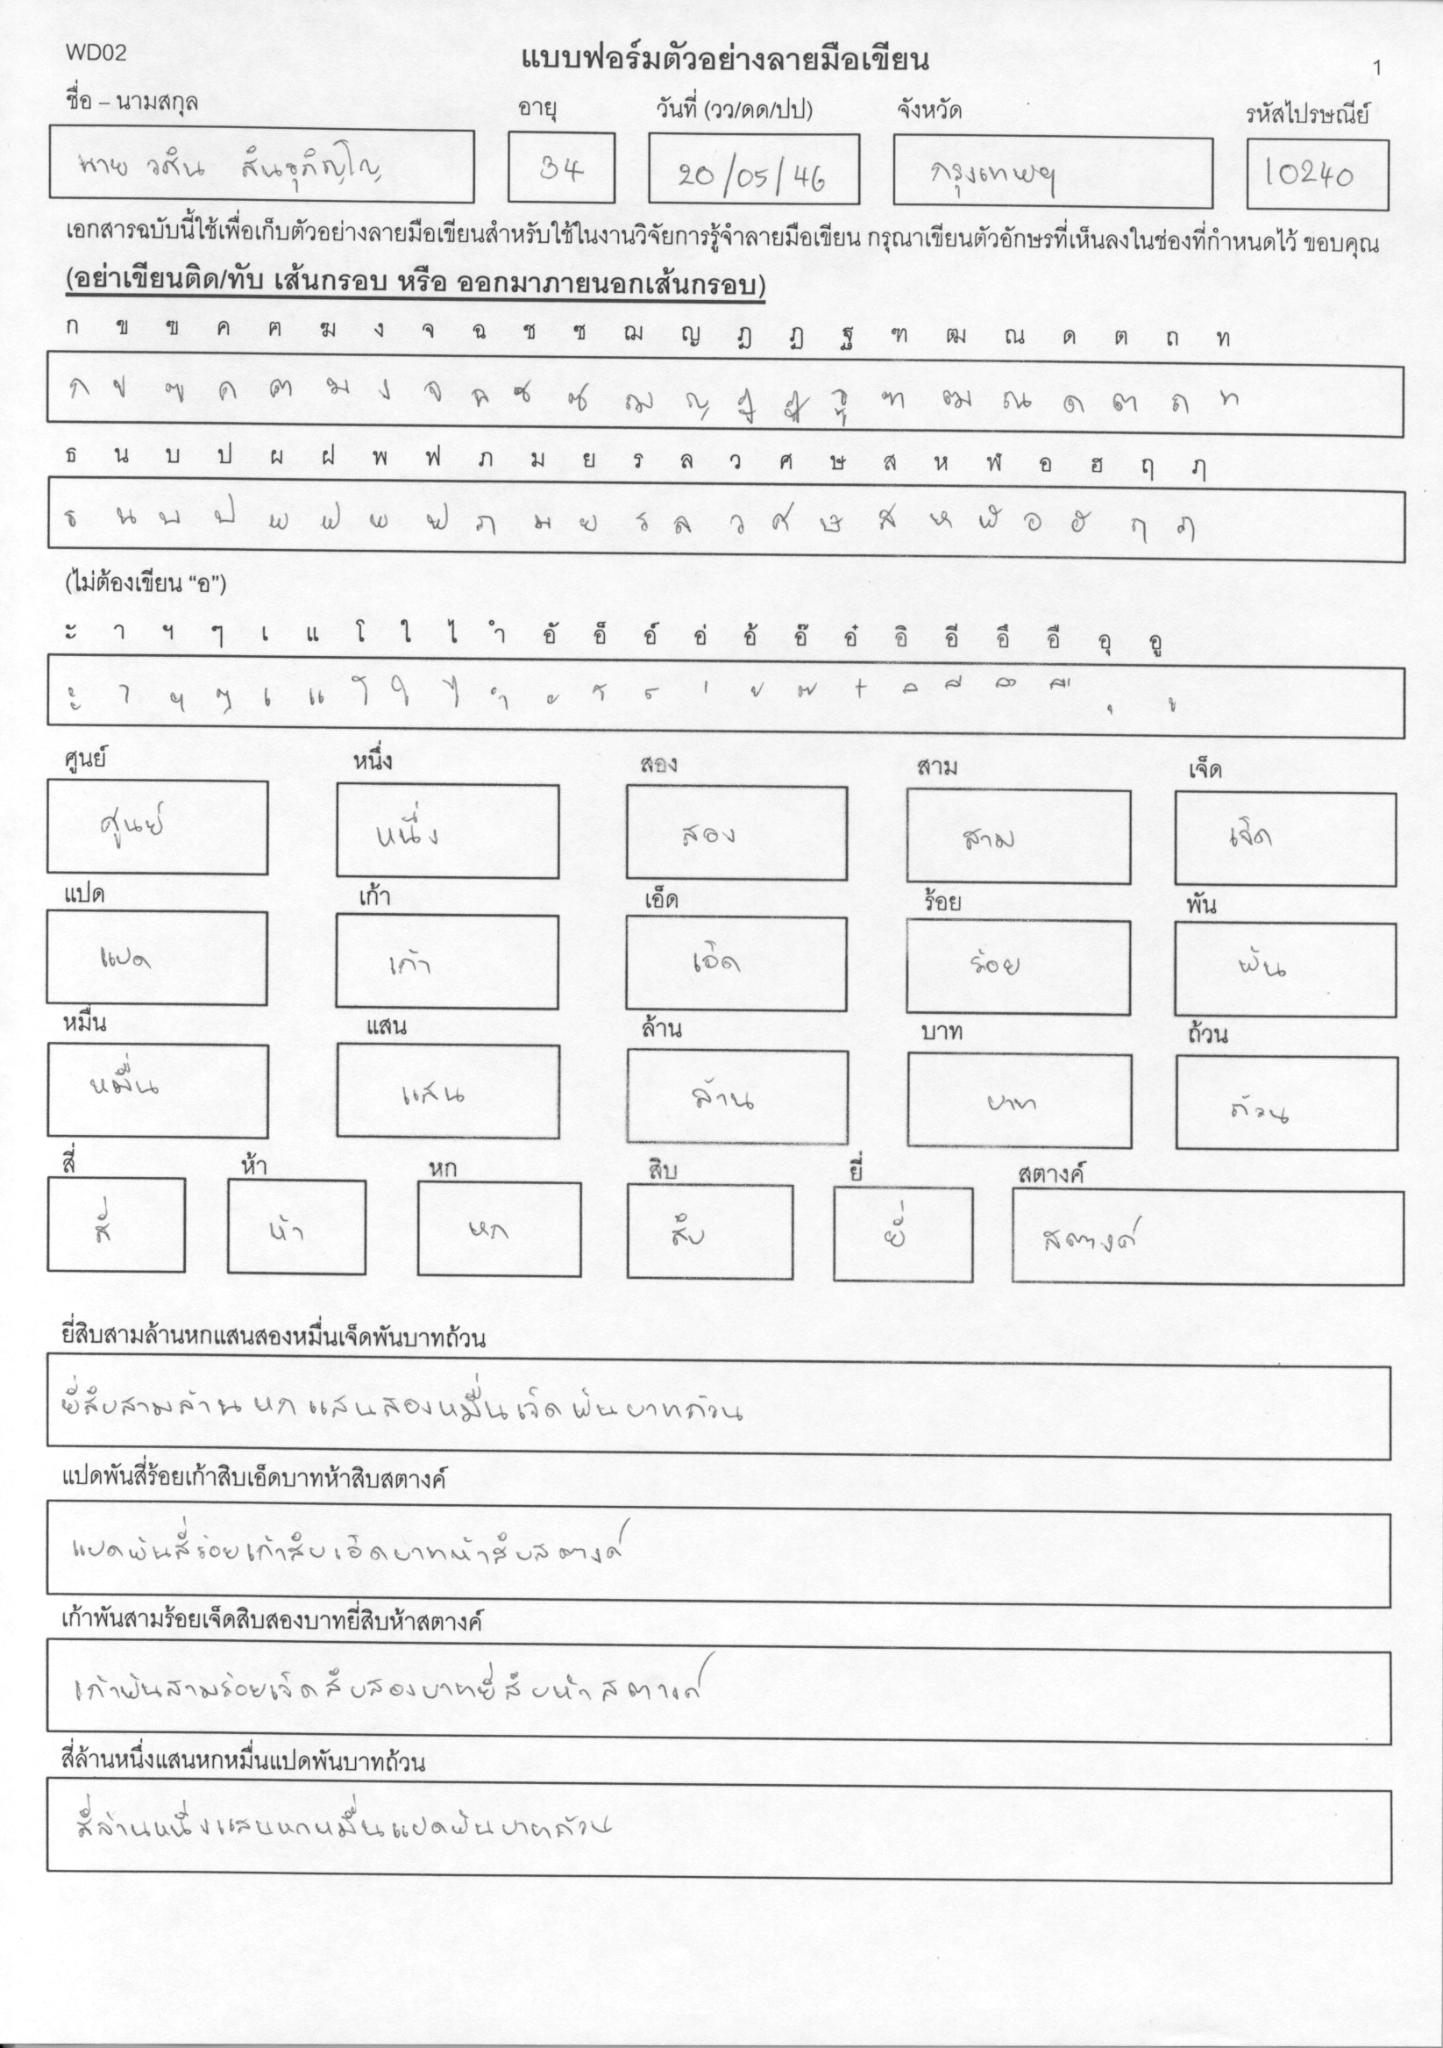 WD02
แบบฟอร์มตัวอย่างลายมือเขียน
1
ชื่อ – นามสกุล อายุ วันที่ (วว/ดด/ปป) จังหวัด รหัสไปรษณีย์
นาย วศิน สินธุภิญโญ 34 20/05/46 กรุงเทพฯ 10240
เอกสารฉบับนี้ใช้เพื่อเก็บตัวอย่างลายมือเขียนสำหรับใช้ในงานวิจัยการรู้จำลายมือเขียน กรุณาเขียนตัวอักษรที่เห็นลงในช่องที่กำหนดไว้ ขอบคุณ
(อย่าเขียนติด/ทับ เส้นกรอบ หรือ ออกมาภายนอกเส้นกรอบ)
ก ข ฃ ค ฅ ฆ ง จ ฉ ช ซ ฌ ญ ฎ ฏ ฐ ฑ ฒ ณ ด ต ถ ท
ก ข ฃ ค ฅ ฆ ง จ ฉ ช ซ ฌ ญ ฎ ฏ ฐ ฑ ฒ ณ ด ต ถ ท
ธ น บ ป ผ ฝ พ ฟ ภ ม ย ร ล ว ศ ษ ส ห ฬ อ ฮ ฤ ฦ
ธ น บ ป ผ ฝ พ ฟ ภ ม ย ร ล ว ศ ษ ส ห ฬ อ ฮ ฤ ฦ
(ไม่ต้องเขียน “อ”)
ะ า ฯ ๆ เ แ โ ใ ไ ำ อั อ็ อ์ อ่ อ้ อ๊ อ๋ อิ อี อึ อื อุ อู
ะ า ฯ ๆ เ แ โ ใ ไ ำ ั ็ ์ ่ ้ ๊ ๋ ิ ี ึ ื ุ ู
ศูนย์ หนึ่ง สอง สาม เจ็ด
ศูนย์ หนึ่ง สอง สาม เจ็ด
แปด เก้า เอ็ด ร้อย พัน
แปด เก้า เอ็ด ร้อย พัน
หมื่น แสน ล้าน บาท ถ้วน
หมื่น แสน ล้าน บาท ถ้วน
สี่ ห้า หก สิบ ยี่ สตางค์
สี่ ห้า หก สิบ ยี่ สตางค์
ยี่สิบสามล้านหกแสนสองหมื่นเจ็ดพันบาทถ้วน
ยี่สิบสามล้านหกแสนสองหมื่นเจ็ดพันบาทถ้วน
แปดพันสี่ร้อยเก้าสิบเอ็ดบาทห้าสิบสตางค์
แปดพันสี่ร้อยเก้าสิบเอ็ดบาทห้าสิบสตางค์
เก้าพันสามร้อยเจ็ดสิบสองบาทยี่สิบห้าสตางค์
เก้าพันสามร้อยเจ็ดสิบสองบาทยี่สิบห้าสตางค์
สี่ล้านหนึ่งแสนหกหมื่นแปดพันบาทถ้วน
สี่ล้านหนึ่งแสนหกหมื่นแปดพันบาทถ้วน